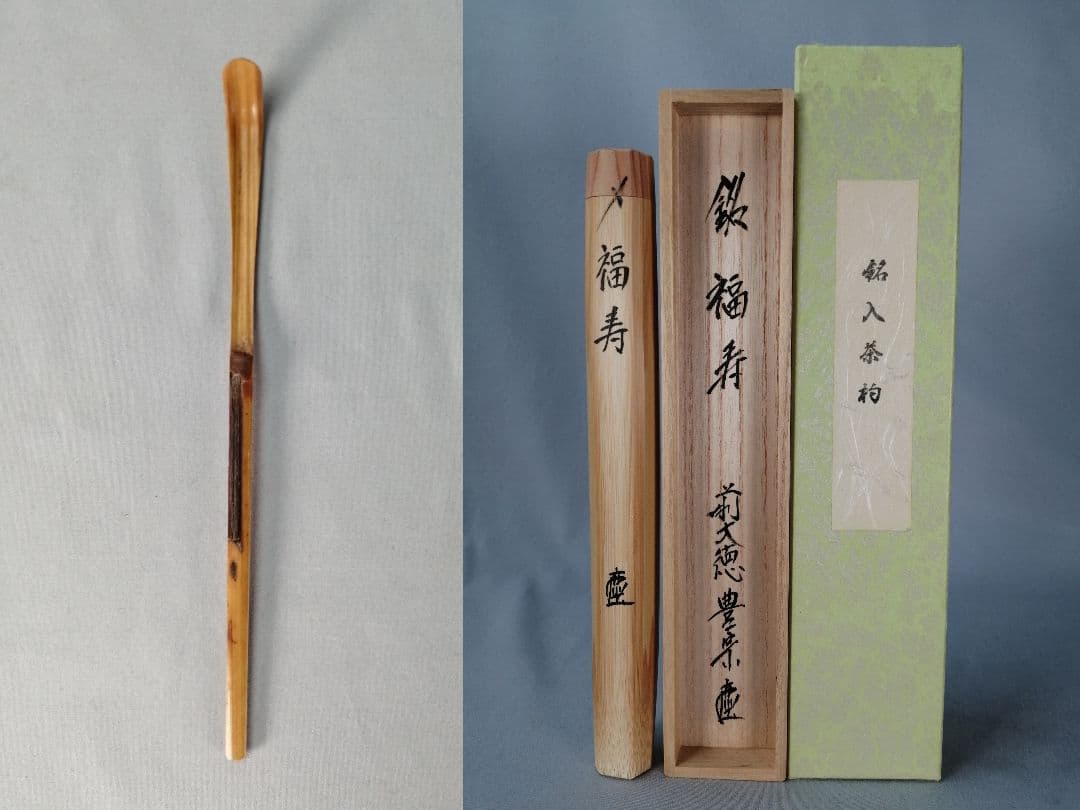 〆
福寿
銘 福寿
前大徳 豊
銘入茶杓